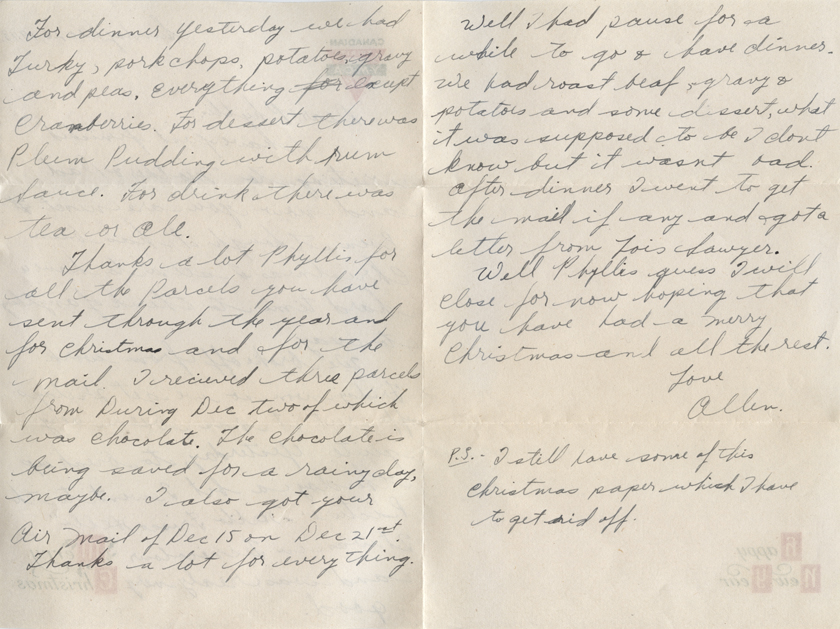 For dinner yesterday we had
Turky, porkchops, potatoes, gravy
and peas, everything for exupt
Cranberries. For dessert there was
Plum Pudding with rum
sauce. For drink there was
tea or Ale.
Thanks a lot Phyllis for
all the Parcels you have
sent through the year and
for christmas and for the
mail. I recieved three parcels
from During Dec two of which
was chocolate. The chocolate is
being saved for a rainy day,
maybe. I also got your
Air Mail of Dec 15 on Dec 21st.
Thanks a lot for everything.
Well I had pause for a
while to go & have dinner.
We had roast beaf, gravy &
potatoes and some dessert, what
it was supposed to be I dont
know but it wasnt bad.
After dinner I went to get
the mail if any and got a
letter from Lois Sawyer.
Well Phyllis guess I will
close for now hoping that
you have had a merry
Christmas and all the rest.
Love
Allen.
P.S.- I still have some of this
christmas paper which I have
to get rid off.
Happy
New Year
Christmas
CANADIAN